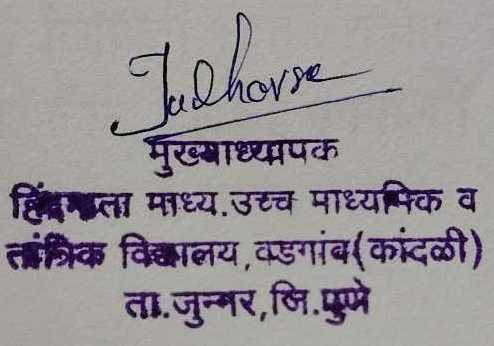 मुख्याध्यापक
हिंदमाता माध्य.उच्च माध्यमिक व
तांत्रिक विद्यालय,वडगांव(कांदळी)
ता.जुन्नर,जि.पुणे